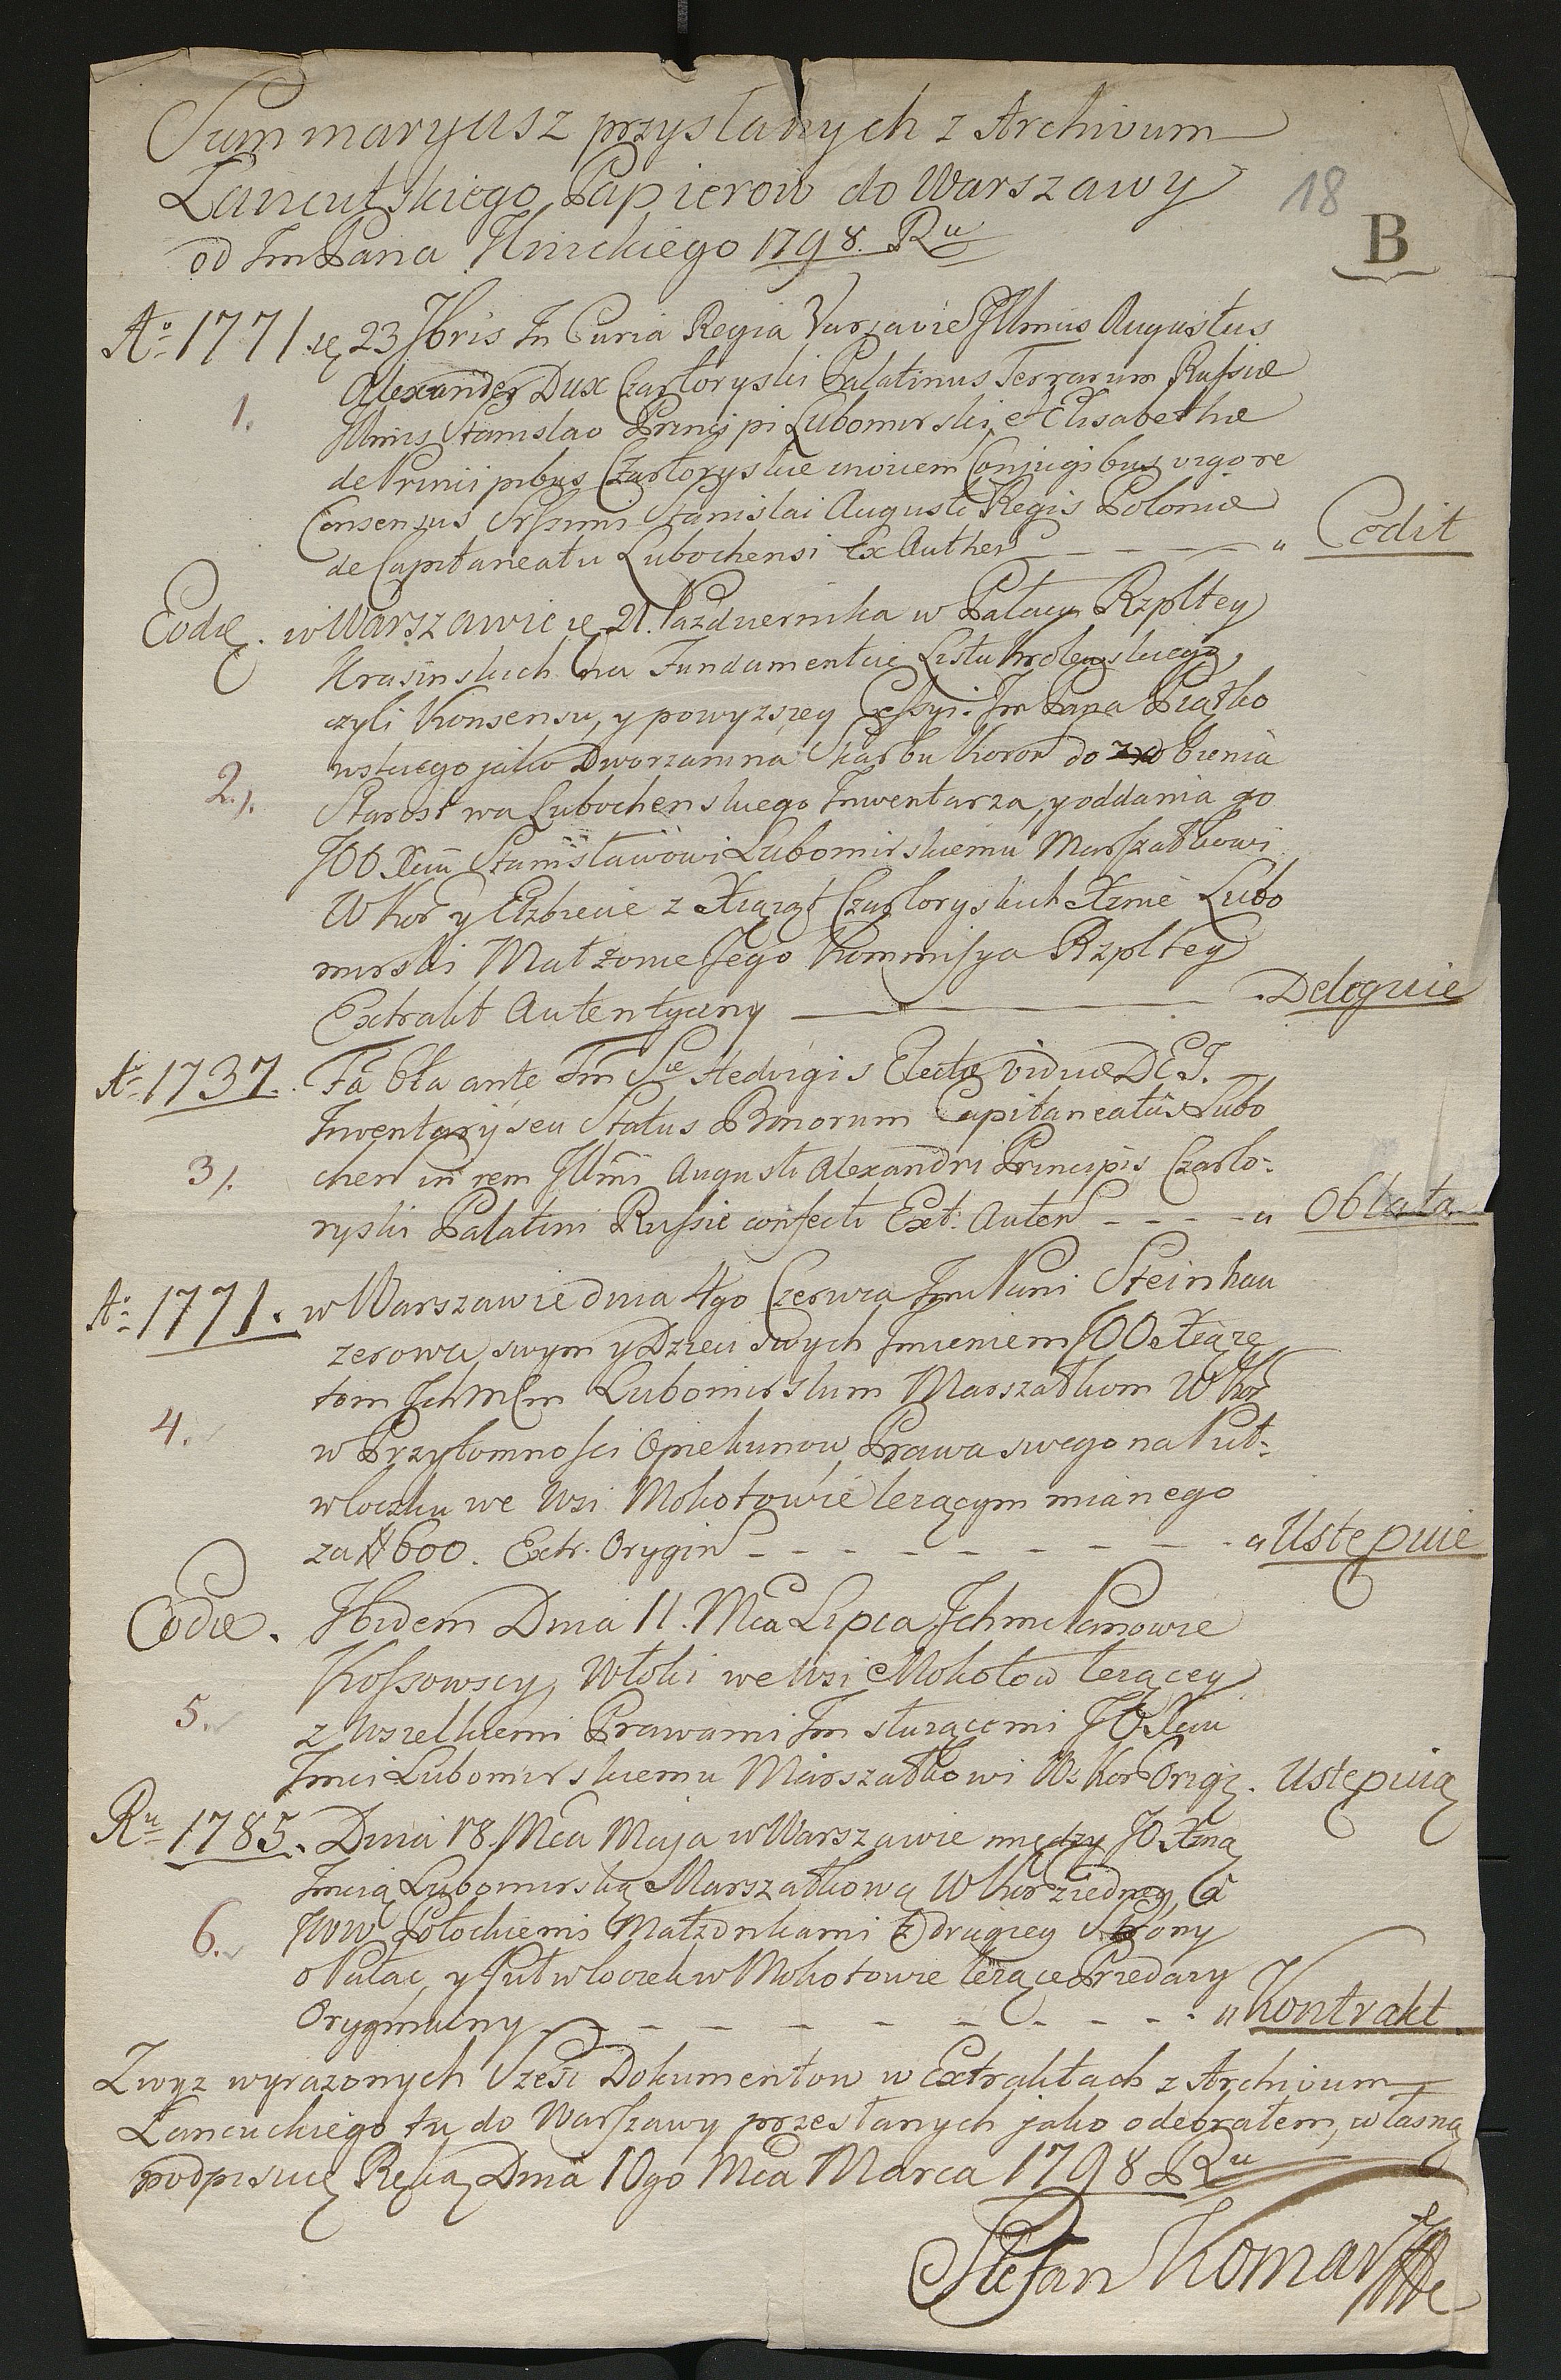 Summaryusz przysłanych z Archivum
Łancutskiego Papierow do Warszawy
od ImPana 1798. Ru
18
B
Ao 1771 23 7bris In Curia Regia Varsaviē Illmus Augustus
1. Alexander Dux Czartoryski Palatinus Terrarum Russiæ
Stanislao Principi Lubomirski et Elisabethæ
de Principibus Czartoryskie Conjugibus vigore
Consensus Srssimi Stanislai Augusti Regis Poloniæ
de Capitaneatu Lubochensi Ex Authen - - - - " Cedit
Eodē. w Warszawie 21. Pazdziernika w Pałacu Rzpltey
Krasinskich na Fundamencie Listu Krolewskiego,
czyli Konsensu, y powyzszey Cessyi. Im Pana Piątko
wskiego jako Dworzanina Skarbu Koron do zrobienia
2./. Starostwa Lubochenskiego Inwentarza, y oddania go
JOO Xciu Stanisławowi Lubomirskiemu Marszałkowi
WKor y Elzbiecie z Xiąząt Czartoryskich Xznie Lubo
mirski Małzonce Jego Kommissya Rzpltey
Extrakt Autentyczny ———— . Deleguie
Ao 1737. Fa bła ante Fm Stæ Hedvigis Electæ viduæ D E J.
Inwentarÿ seu Status Bonorum Capitaneatus Lubo
3/. chen in rem Illmi Augusti Alexandri Principis Czarto-
ryski Palatini Russiē confecti Ext. Auten - - - - " Oblata
Ao 1771. w Warszawie dnia 4go Czerwca Imć Pani Steinhau
zerowa swym y Dzieci swych Imieniem JOO Xiązę
tom Lubomirskim Marszałkom WKor
4. w Przytomności Opiekunow Prawa swego na Puł-
włoczku we Wsi Mokotowie lezącym mianego
za # 600. Extr. Orygin - - - - - - - - " Ustępuie
Eodē. Ibidem Dnia 11. Mca Lipca Ichmć Panowie
Kossowscy, Włoki we Wsi Mokotow lezącey
5. z wszelkiemi Prawami Im słuzącemi JO Xciu
Imci Lubomirskiemu Marszałkowi W Kor Origi. Ustępuią
Ru 1785. Dnia 18. Mca Maja w Warszawie między JO Xzną
Imcią Lubomirską Marszałkową W Kor z iedney, a
6. JWW Potockiemi Małzonkami z drugiey Strony
o Pałac, y Pułwłoczek w Mokotowie lezące Przedazy
Orygmalny - - - - - - - - - " Kontrakt.
Zwyz wyrazonych Sześć Dokumentow w Extraktach z Archivum
Łancuckiego tu do Warszawy przesłanych jako odebrałem, własną
podpisuię Ręką Dnia 10go Mca Marca 1798 Ru
Stefan